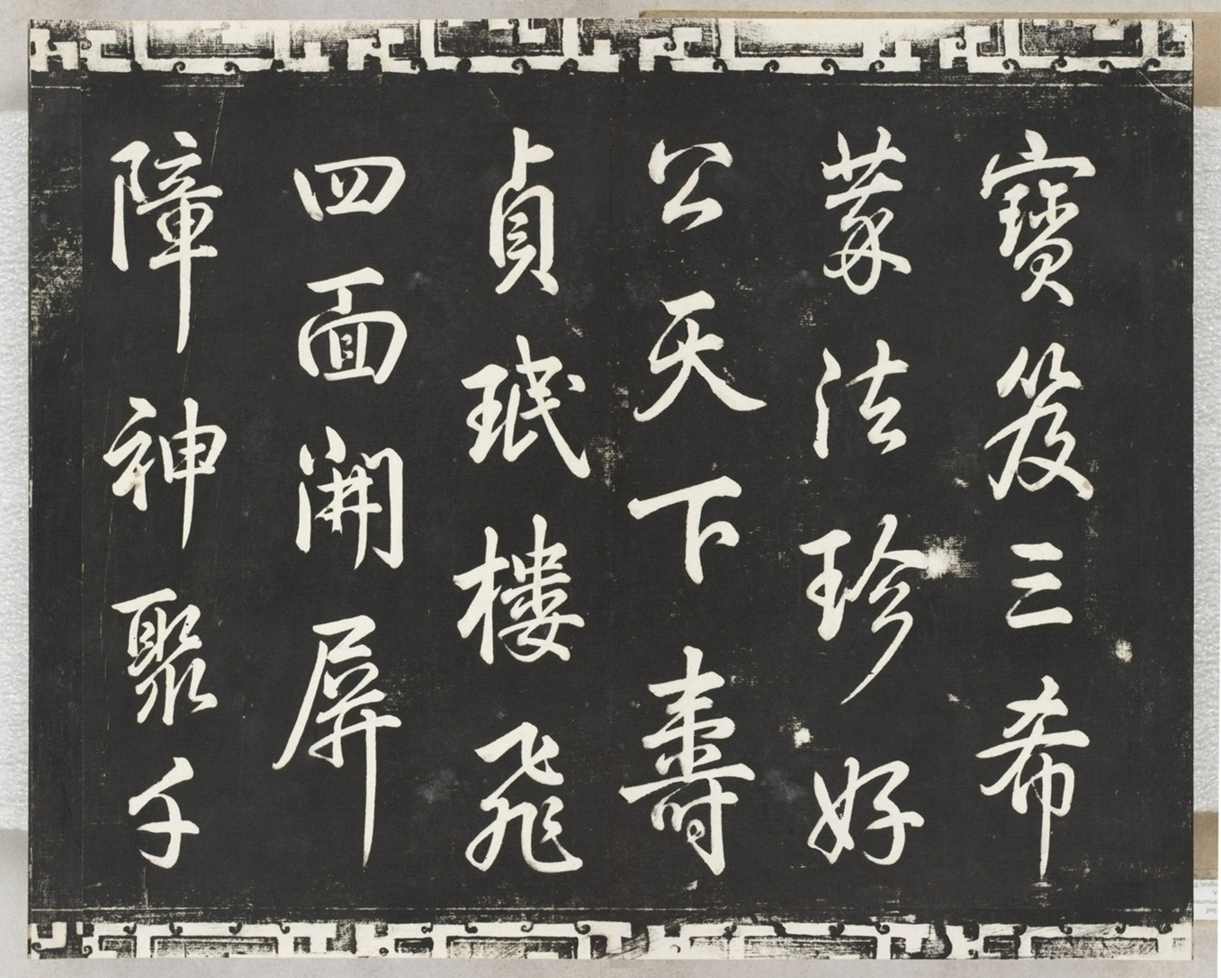 寶笈三希
蒙法珍好
公天下壽
貞珉樓飛
四面開屏
障神聚千